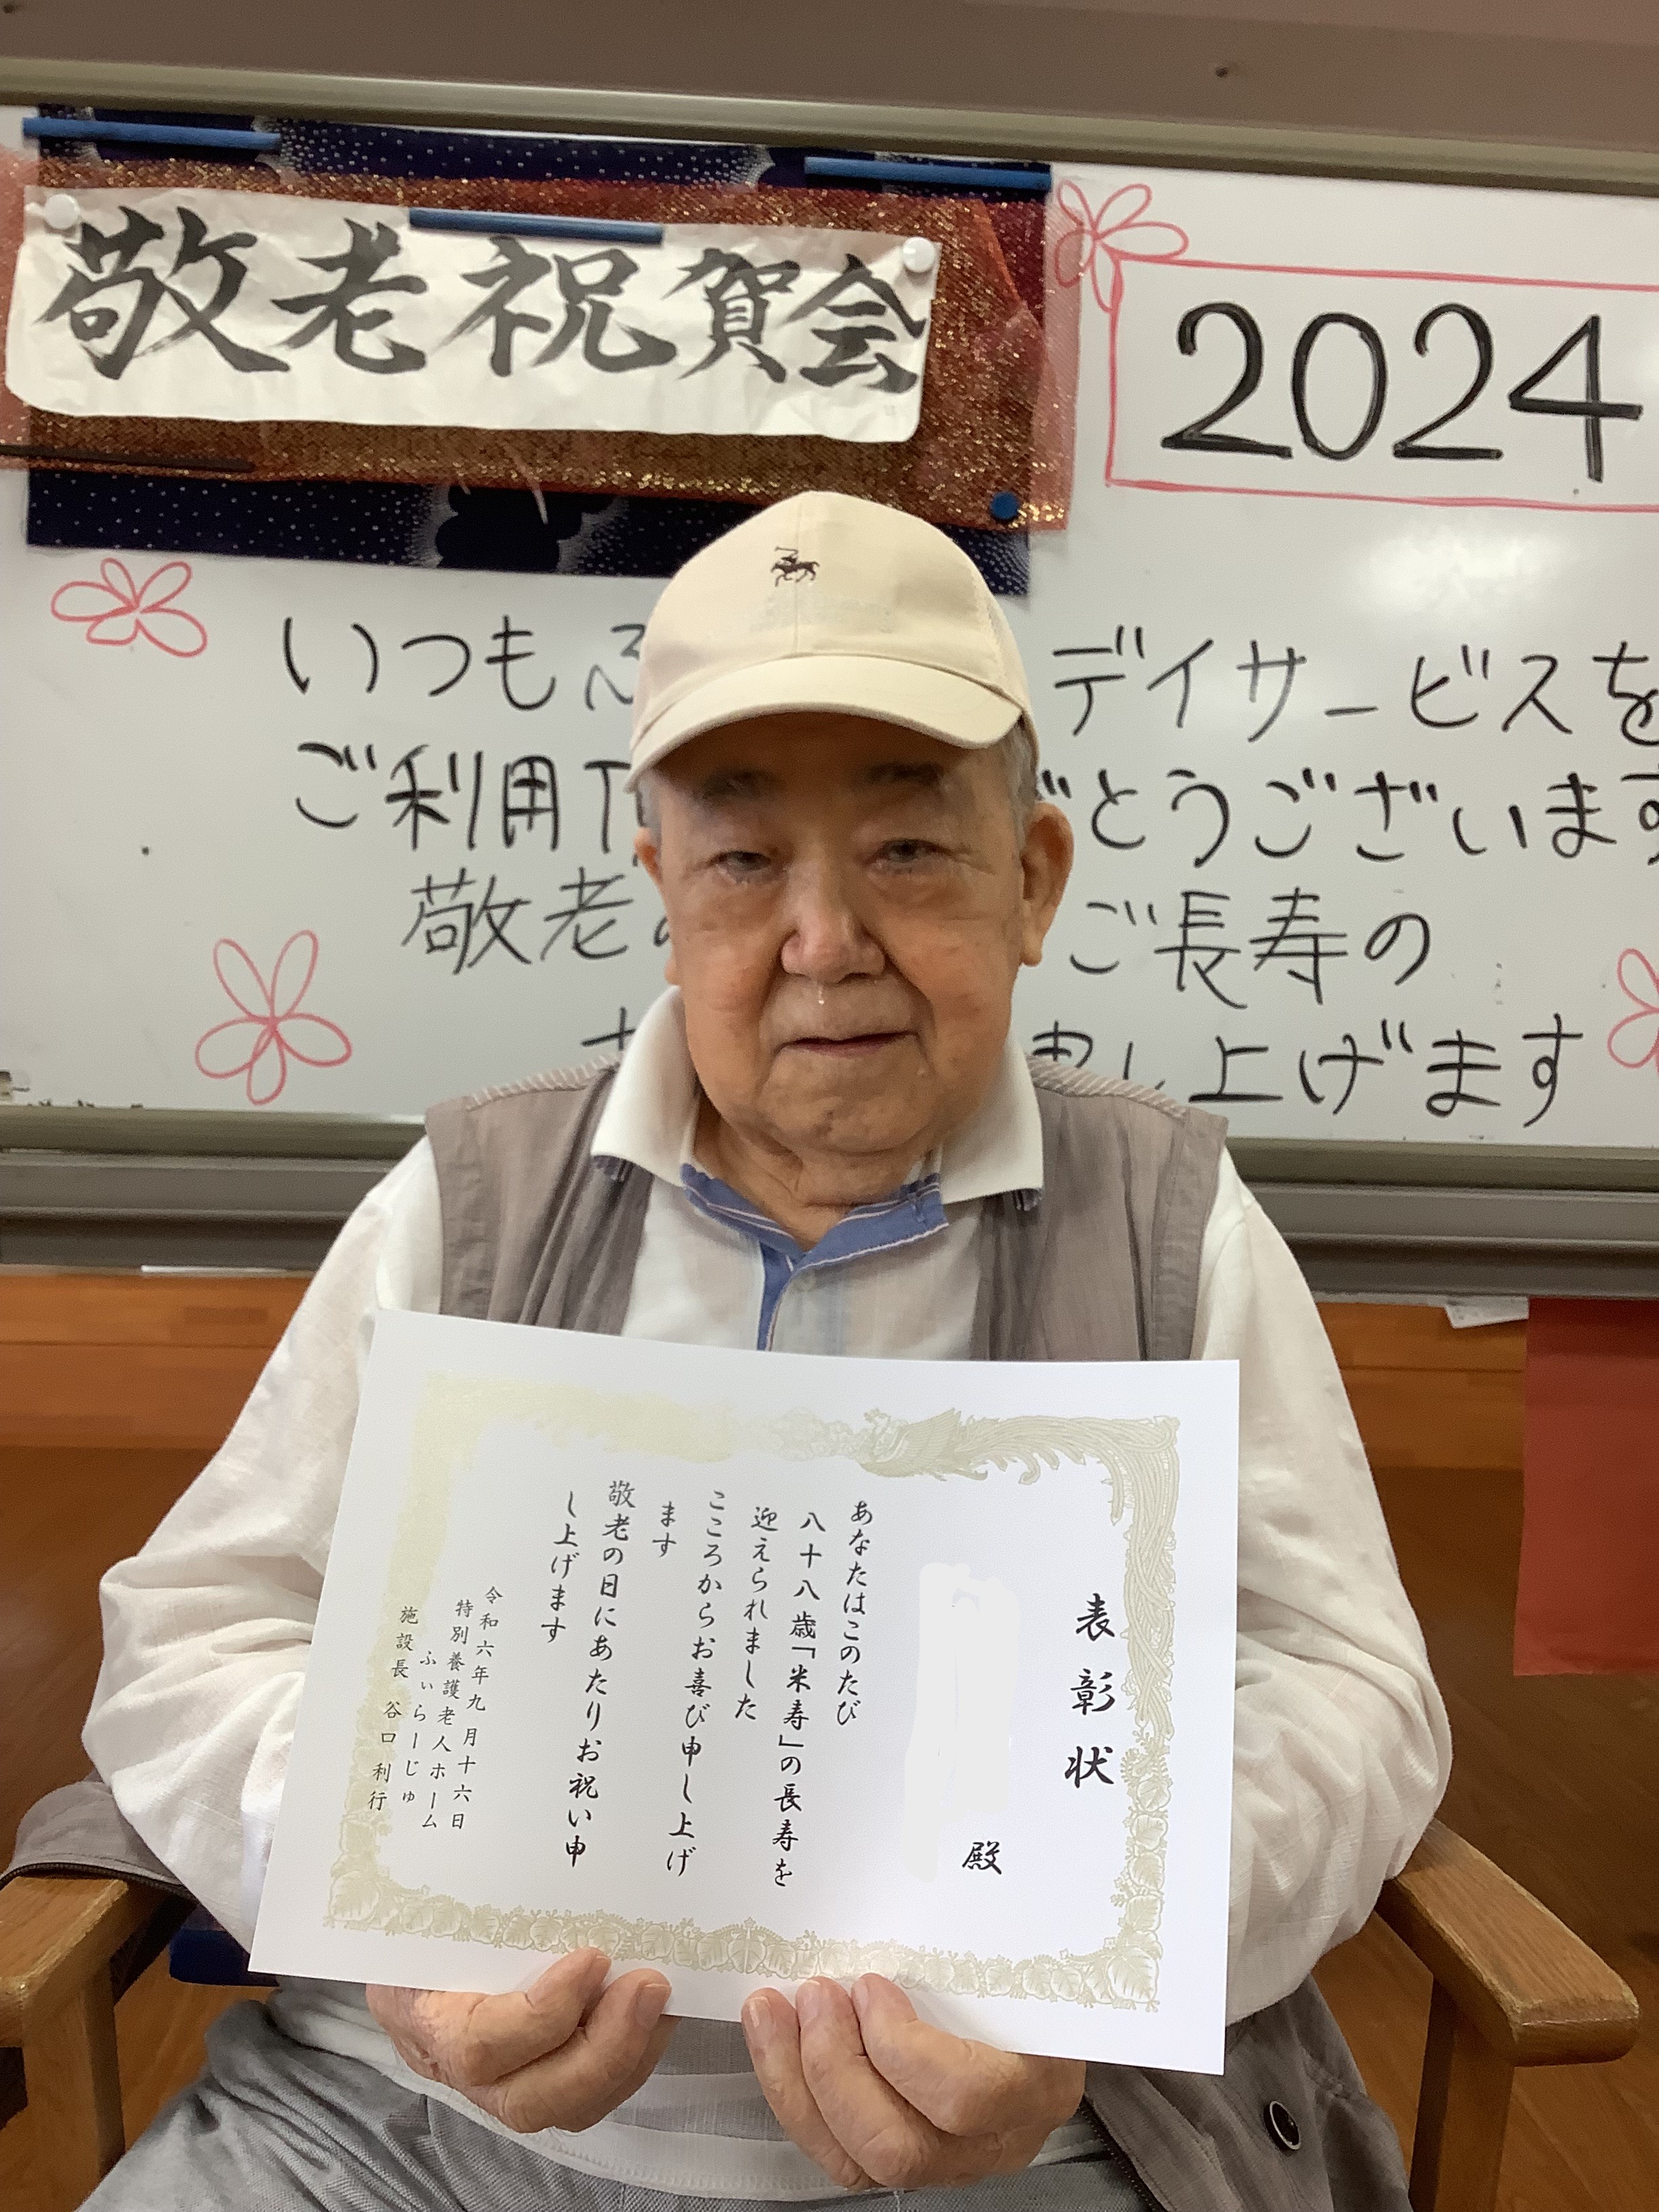 敬老祝賀会
2024
いつもふ デイサービスを
ご利用頂 とうございます
敬老の ご長寿の
申し上げます
表彰状
殿
あなたはこのたび
八十八歳「米寿」の長寿を
迎えられました
こころからお喜び申し上げ
ます
敬老の日にあたりお祝い申
し上げます
令和六年九月十六日
特別養護老人ホーム
ふぃらーじゅ
施設長 谷口利行